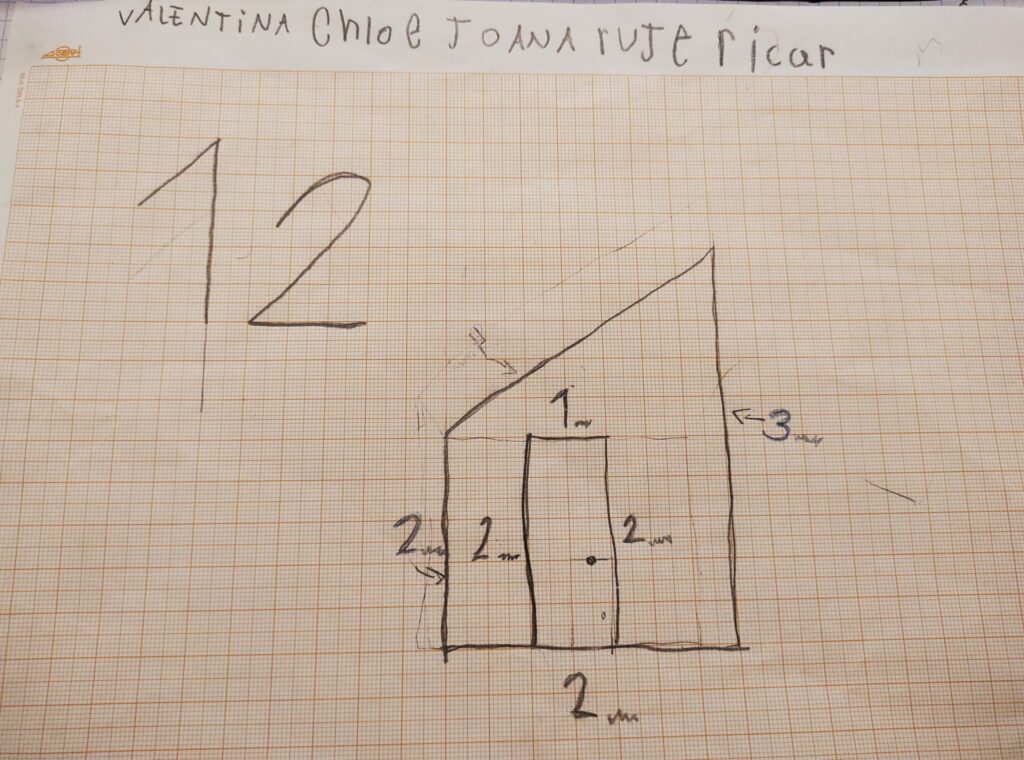 VALENTINA Chloe JOANA rute ricar
12
1m
3m
2m 2m 2m
2m